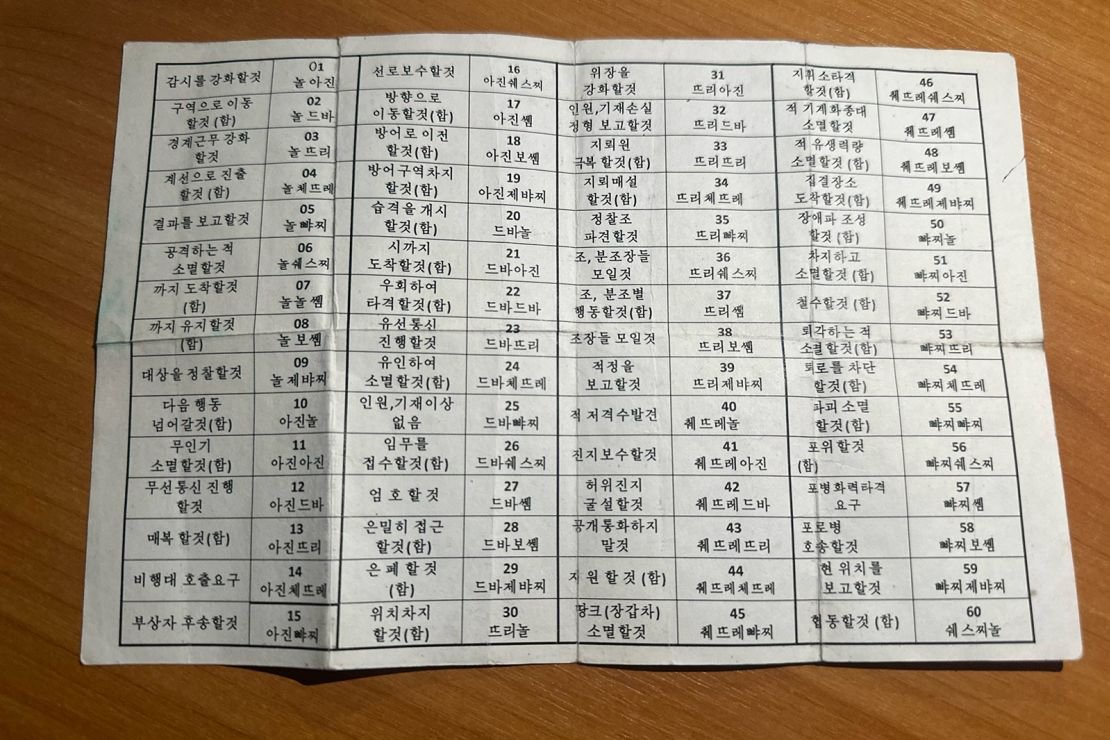 감시를 강화할것
01
놀 아진
구역으로 이동
할것 (함)
02
놀 드바
경계근무 강화
할것
03
놀 뜨리
계선으로 진출
할것 (함)
04
놀 체뜨레
결과를 보고할것
05
놀 뺘찌
공격하는 적
소멸할것
06
놀 쉐스찌
까지 도착할것
(함)
07
놀놀 쎔
까지 유지할것
(함)
08
놀 보쎔
대상을 정찰할것
09
놀 제뱌찌
다음 행동
넘어갈것(함)
10
아진놀
무인기
소멸할것(함)
11
아진아진
무선통신 진행
할것
12
아진드바
매복 할것(함)
13
아진뜨리
비행대 호출요구
14
아진체뜨레
부상자 후송할것
15
아진뺘찌
선로보수할것
16
아진쉐스찌
방향으로
이동할것(함)
17
아진쎔
방어로 이전
할것(함)
18
아진보쎔
방어구역차지
할것(함)
19
아진제뱌찌
습격을 개시
할것(함)
20
드바놀
시까지
도착할것(함)
21
드바아진
우회하여
타격할것(함)
22
드바드바
유선통신
진행할것
23
드바뜨리
유인하여
소멸할것(함)
24
드바체뜨레
인원,기재이상
없음
25
드바뺘찌
임무를
접수할것(함)
26
드바쉐스찌
엄호할것
27
드바쎔
은밀히 접근
할것(함)
28
드바보쎔
은폐할것
(함)
29
드바제뱌찌
위치차지
할것(함)
30
뜨리놀
위장을
강화할것
31
뜨리아진
인원,기재손실
정형 보고할것
32
뜨리드바
지뢰원
극복 할것(함)
33
뜨리뜨리
지뢰매설
할것(함)
34
뜨리체뜨레
정찰조
파견할것
35
뜨리뺘찌
조, 분조장들
모일것
36
뜨리쉐스찌
조, 분조별
행동할것(함)
37
뜨리쎔
조장들 모일것
38
뜨리보쎔
적정을
보고할것
39
뜨리제바찌
적 저격수발견
40
췌뜨레놀
진지보수할것
41
췌뜨레아진
허위진지
굴설할것
42
췌뜨레드바
공개통화하지
말것
43
췌뜨레뜨리
지원할것 (함)
44
췌뜨레체뜨레
땅크(장갑차)
소멸할것
45
췌뜨레뺘찌
지휘소타격
할것(함)
46
췌뜨레쉐스찌
적 기계화종대
소멸할것
47
췌뜨레쎔
적 유생력량
소멸할것 (함)
48
췌뜨레보쎔
집결장소
도착할것(함)
49
췌뜨레제뱌찌
장애파 조성
할것 (함)
50
뺘찌놀
차지하고
소멸할것 (함)
51
뺘찌아진
철수할것 (함)
52
뺘찌드바
퇴각하는 적
소멸할것(함)
53
뺘찌뜨리
퇴로를 차단
할것(함)
54
뺘찌체뜨레
파괴 소멸
할것(함)
55
뺘찌뺘찌
포위할것
(함)
56
뺘찌쉐스찌
포병화력타격
요구
57
뺘찌쎔
포로병
호송할것
58
뺘찌보쎔
현 위치를
보고할것
59
뺘찌제뱌찌
협동할것 (함)
60
쉐스찌놀